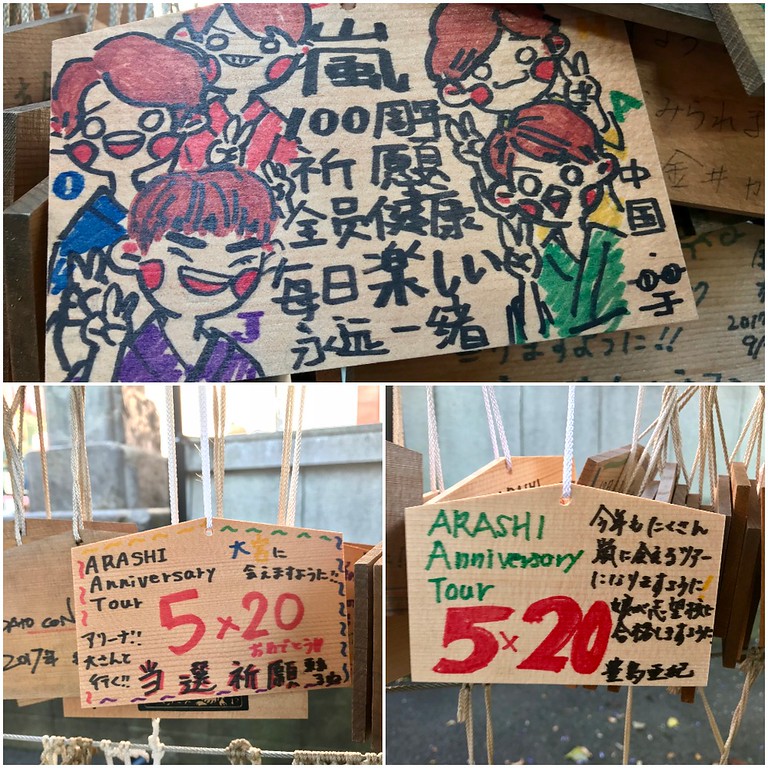 嵐
100周年
祈願
全员健康
毎日楽しい
永远一緒
O
A
J
中国
2017
9/
ますように!!
ARASHI
Anniversary
Tour
大宮に
会えますように!!
5×20
おめでとう
アリーナ!!
大さんて
行く!!
当選祈願
2017年
ARASHI
Anniversary
Tour
5×20
今年もたくさん
嵐に会えるツアー
になりますように!
娘が志望校に
合格しますように